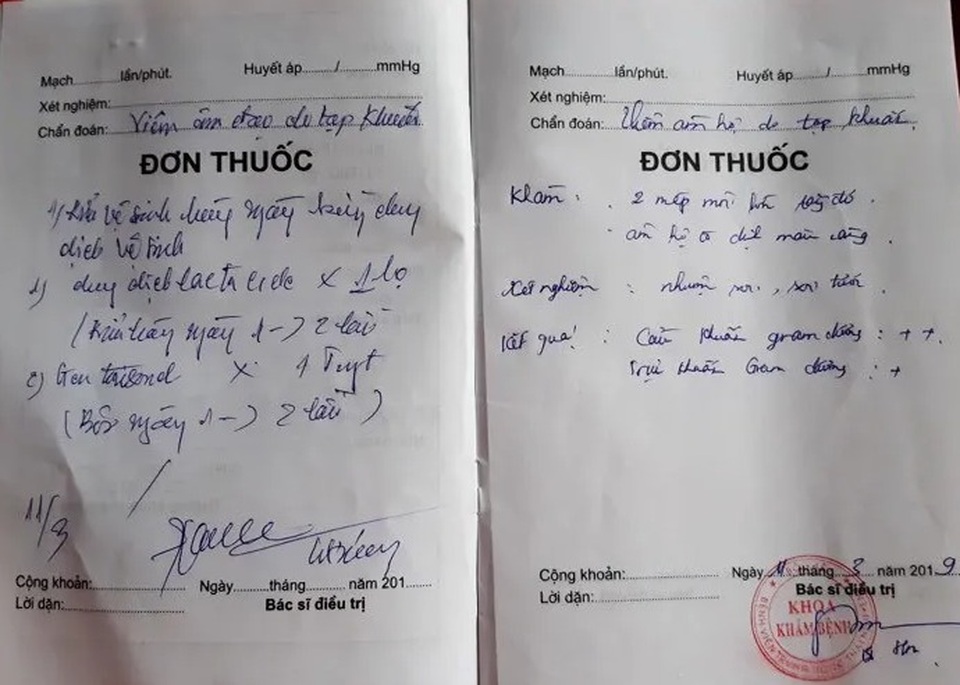 Mạch.............lần/phút. Huyết áp........../..........mmHg
Xét nghiệm:
Chẩn đoán: Viêm âm đạo do tạp khuẩn
ĐƠN THUỐC
vệ sinh hàng ngày bằng dung
dịch vệ sinh
1) dung dịch lactacide x 1 lọ
ngày 1 -> 2 lần
2) Gentrisond x 1 Tuýt
(Bôi ngày 1 -> 2 lần)
11/3
Cộng khoản:
Ngày..........tháng.......... năm 201.......
Lời dặn:
Bác sĩ điều trị
Mạch.............lần/phút. Huyết áp........../..........mmHg
Xét nghiệm:
Chẩn đoán: Viêm âm hộ do tạp khuẩn.
ĐƠN THUỐC
Khám : . 2 mép môi lớn
âm hộ có dịch màu vàng .
Xét nghiệm : nhuộm soi, soi tươi .
Kết quả : Cầu khuẩn gram dương : + +.
Trực khuẩn Gram dương : +
Cộng khoản:
Ngày 11 tháng 3 năm 2019
Lời dặn:
Bác sĩ điều trị
KHOA
KHÁM BỆNH